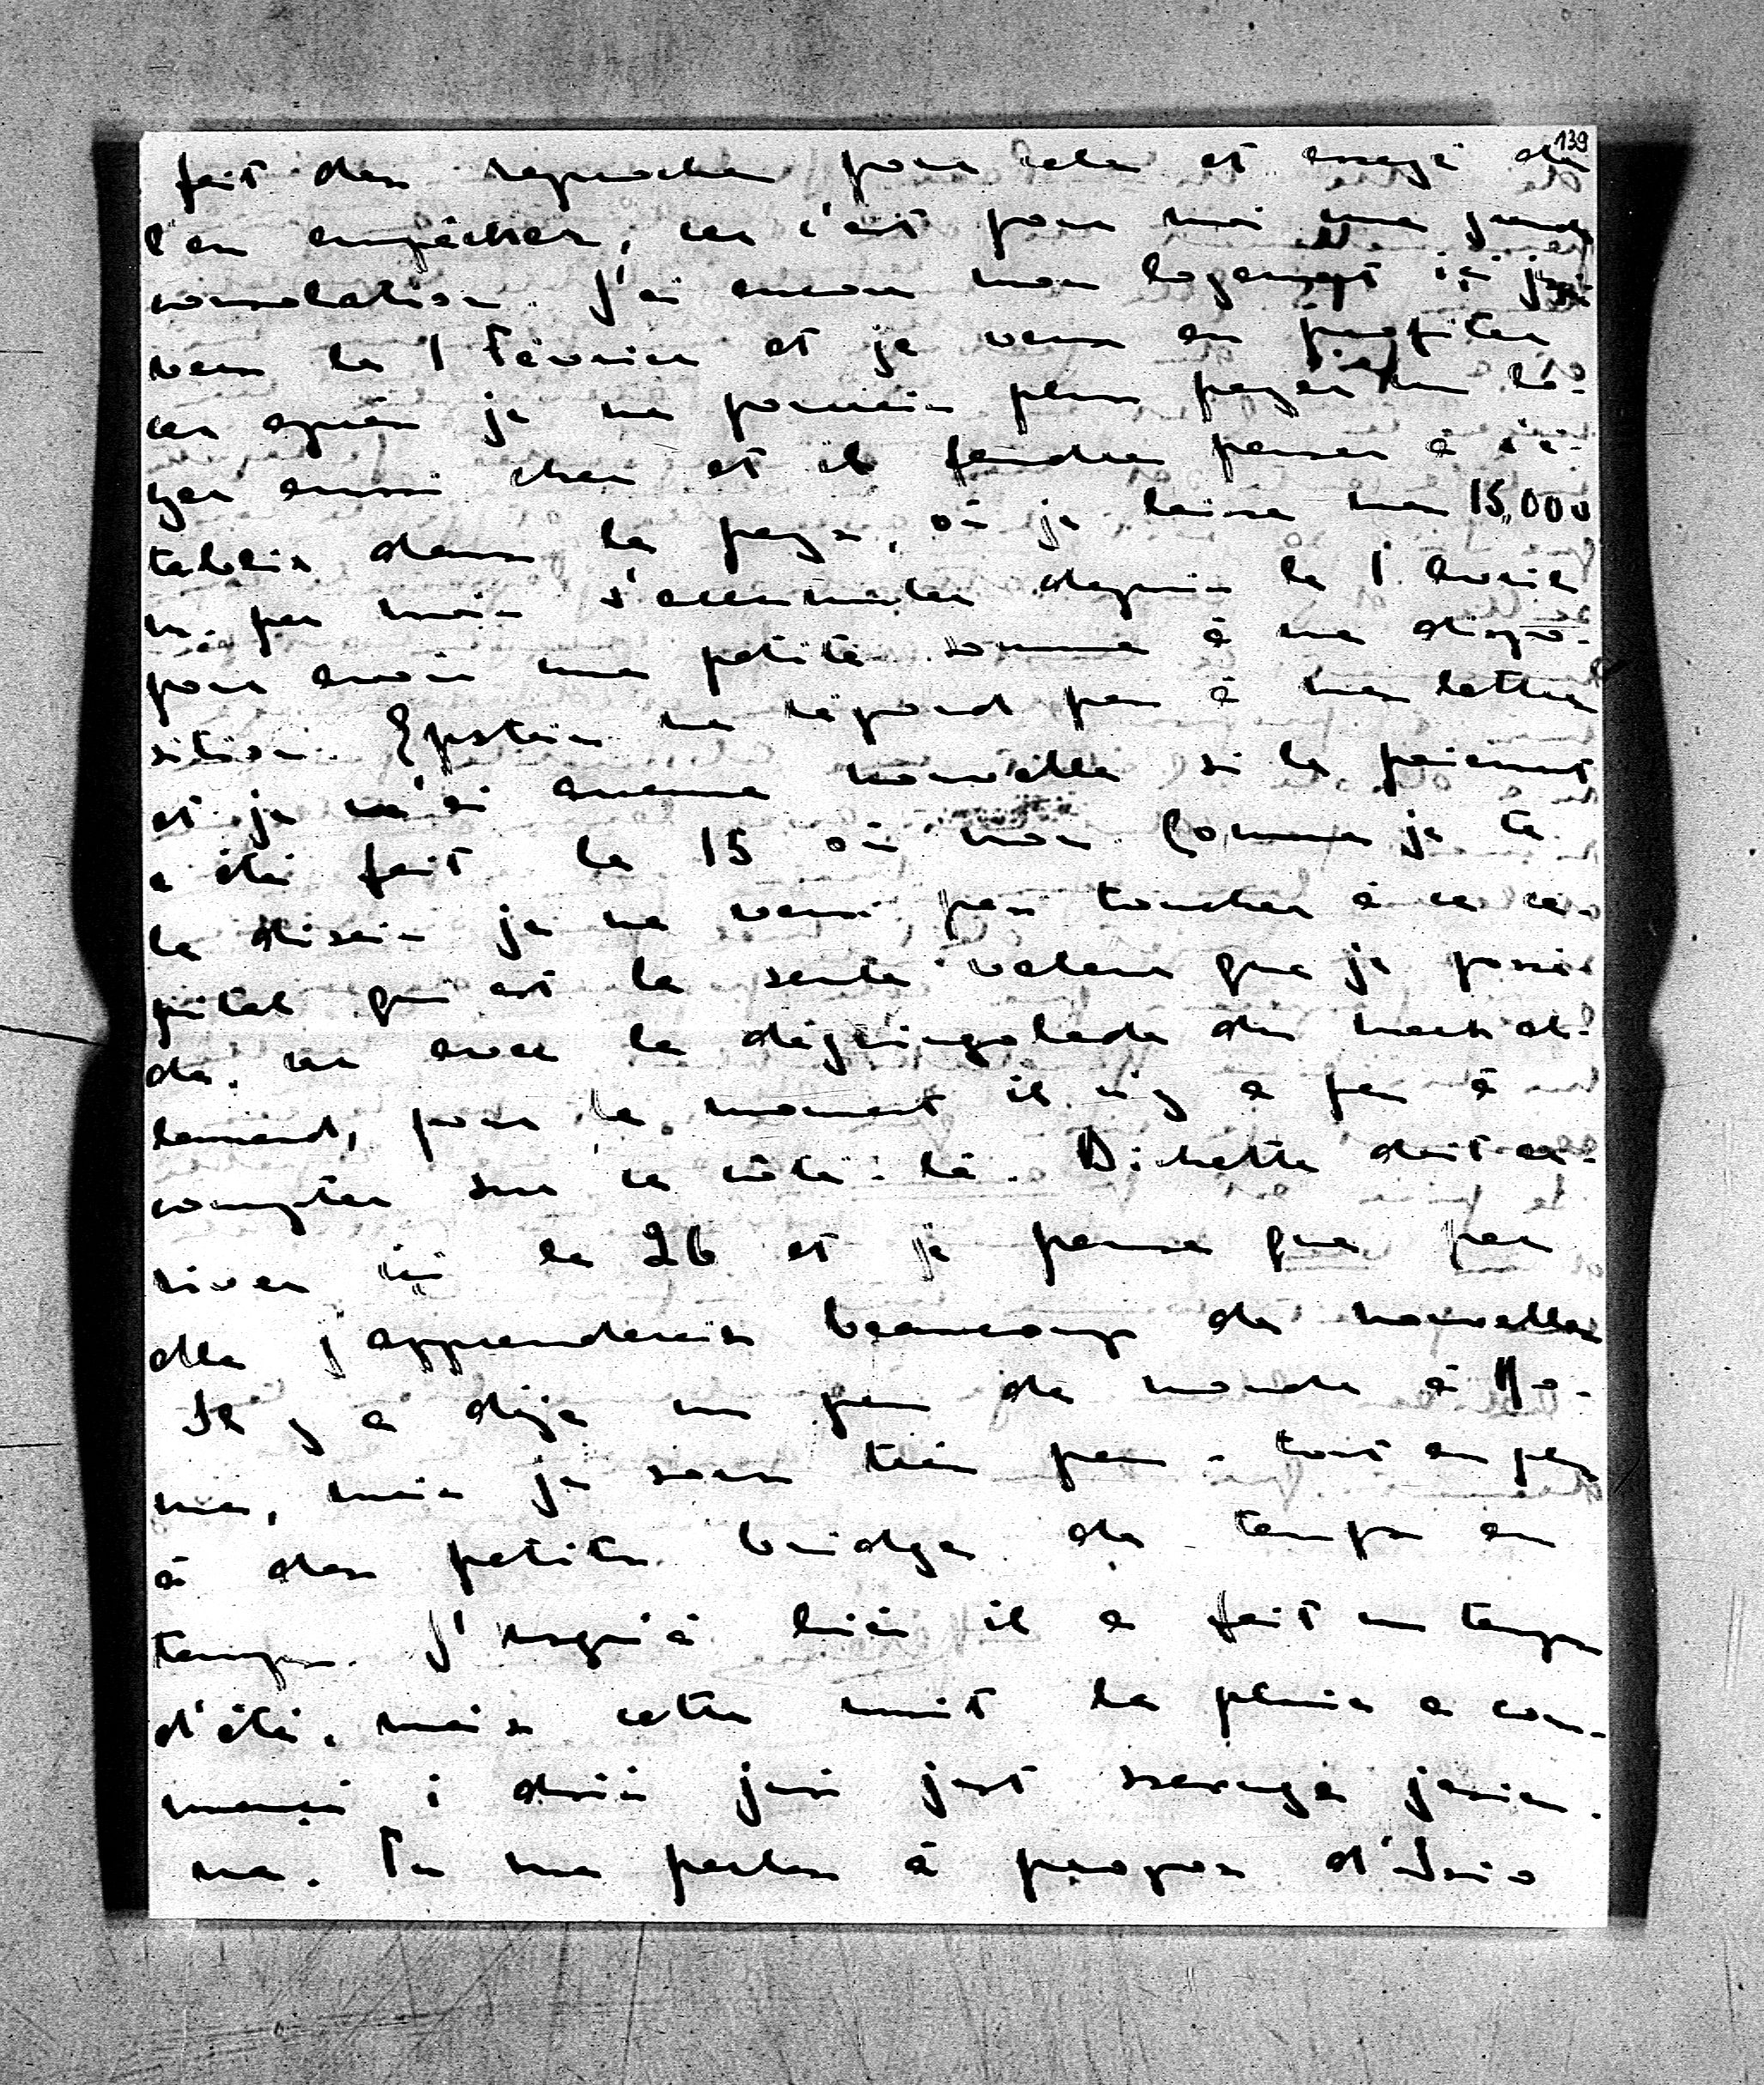 139
fait des reproches pour cela et essayé de
l'en empêcher, car c'est pour moi une grande
consolation. J'ai encore mon logement ici jus
vers le 1 Février et je veux en profiter
car après je ne pourrais plus payer un lo-
yer aussi cher et il faudra penser à s'é-
tablir dans le pays, où je laisse mes 15,000
m. par mois s'accumuler depuis le 1 Avril
pour avoir une petite somme à ma dispo-
sition. Epstein ne répond pas à mes lettres
et je n'ai aucune nouvelle si le paiement
a été fait le 15 où non. Comme je te
le disais je ne veux pas toucher à ce ca-
pital qui est la seule valeur que je possè-
de, car avec la dégringolade du mark al-
lemand, pour le moment il n'y a pas à
compter sur ce côté-là. Dinette doit ar-
river ici le 26 et je pense que par
elle j'apprenderais beaucoup de nouvelles
Il y a déja un peu de monde à Ro-
me, mais je sors très peu - tout au plus
à des petits bridges de temps en
temps. J'usqu'à hier il a fait un temps
d'été, mais cette nuit la pluie a com-
mencé i dziś już jest szaruga jesien-
na. Tu me parles à propos d'Inio